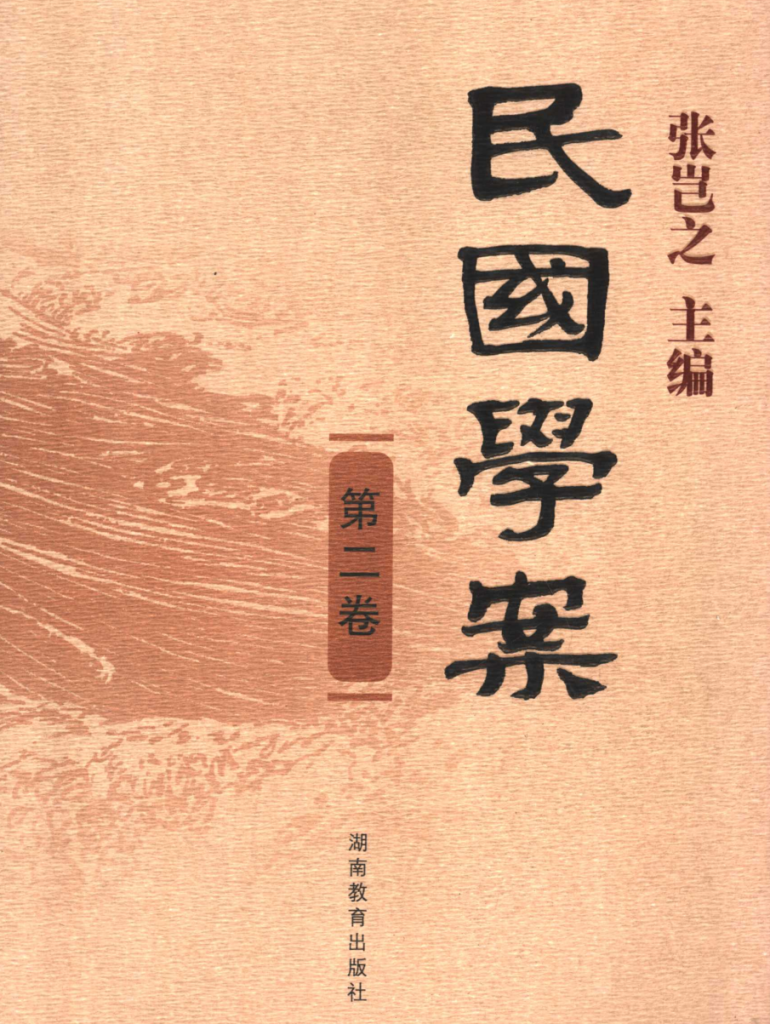 张岂之 主编
民國學案
第二卷
湖南教育出版社